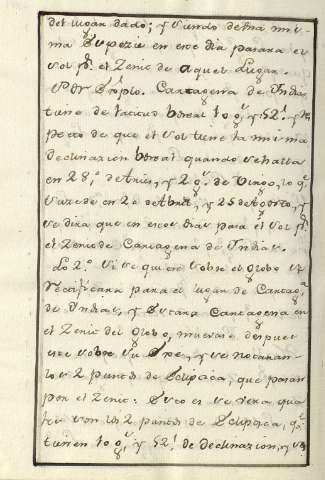 del lugar dado; y siendo de una mis-
ma Supozic en ese dia pasara el
sol pr. el Zenit de aquel Lugar.
Por Exmplo. Cartagena de India
tiene de latitud boreal 10 g. y 52'. y
pecto de que el sol tiene la misma
declinazion boreal quando se halla
en 28,° de Aries, y 2 g. de Virgo, lo q.
suzede en 20 de Abril, y 25 de Agosto, y
se dira que en esos dias pasa el sol pr.
el Zenit de Cartagena de Indias.
Lo 2.° si se quiere sobre el globo se
rectificara para el lugar de Cartaga.
de Indias, y Estara Cartagena en
el Zenit del globo, muevase despues
este sobre su Exe, y se notaran
los 2 puntos de Ecliptica, que pasan
por el Zenit: Esto es se vera que
son los 2 puntos de Ecliptica, q.
tienen 10 g. y 52'. de declinazion, y